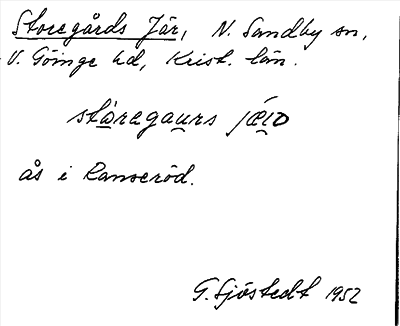 Storegårds Jär, N. Sandby sn,
V. Göinge hd, Krist. län.
stòregau̯rs jǽi̯ɒ
ås i Ranseröd.
G. Sjöstedt 1952